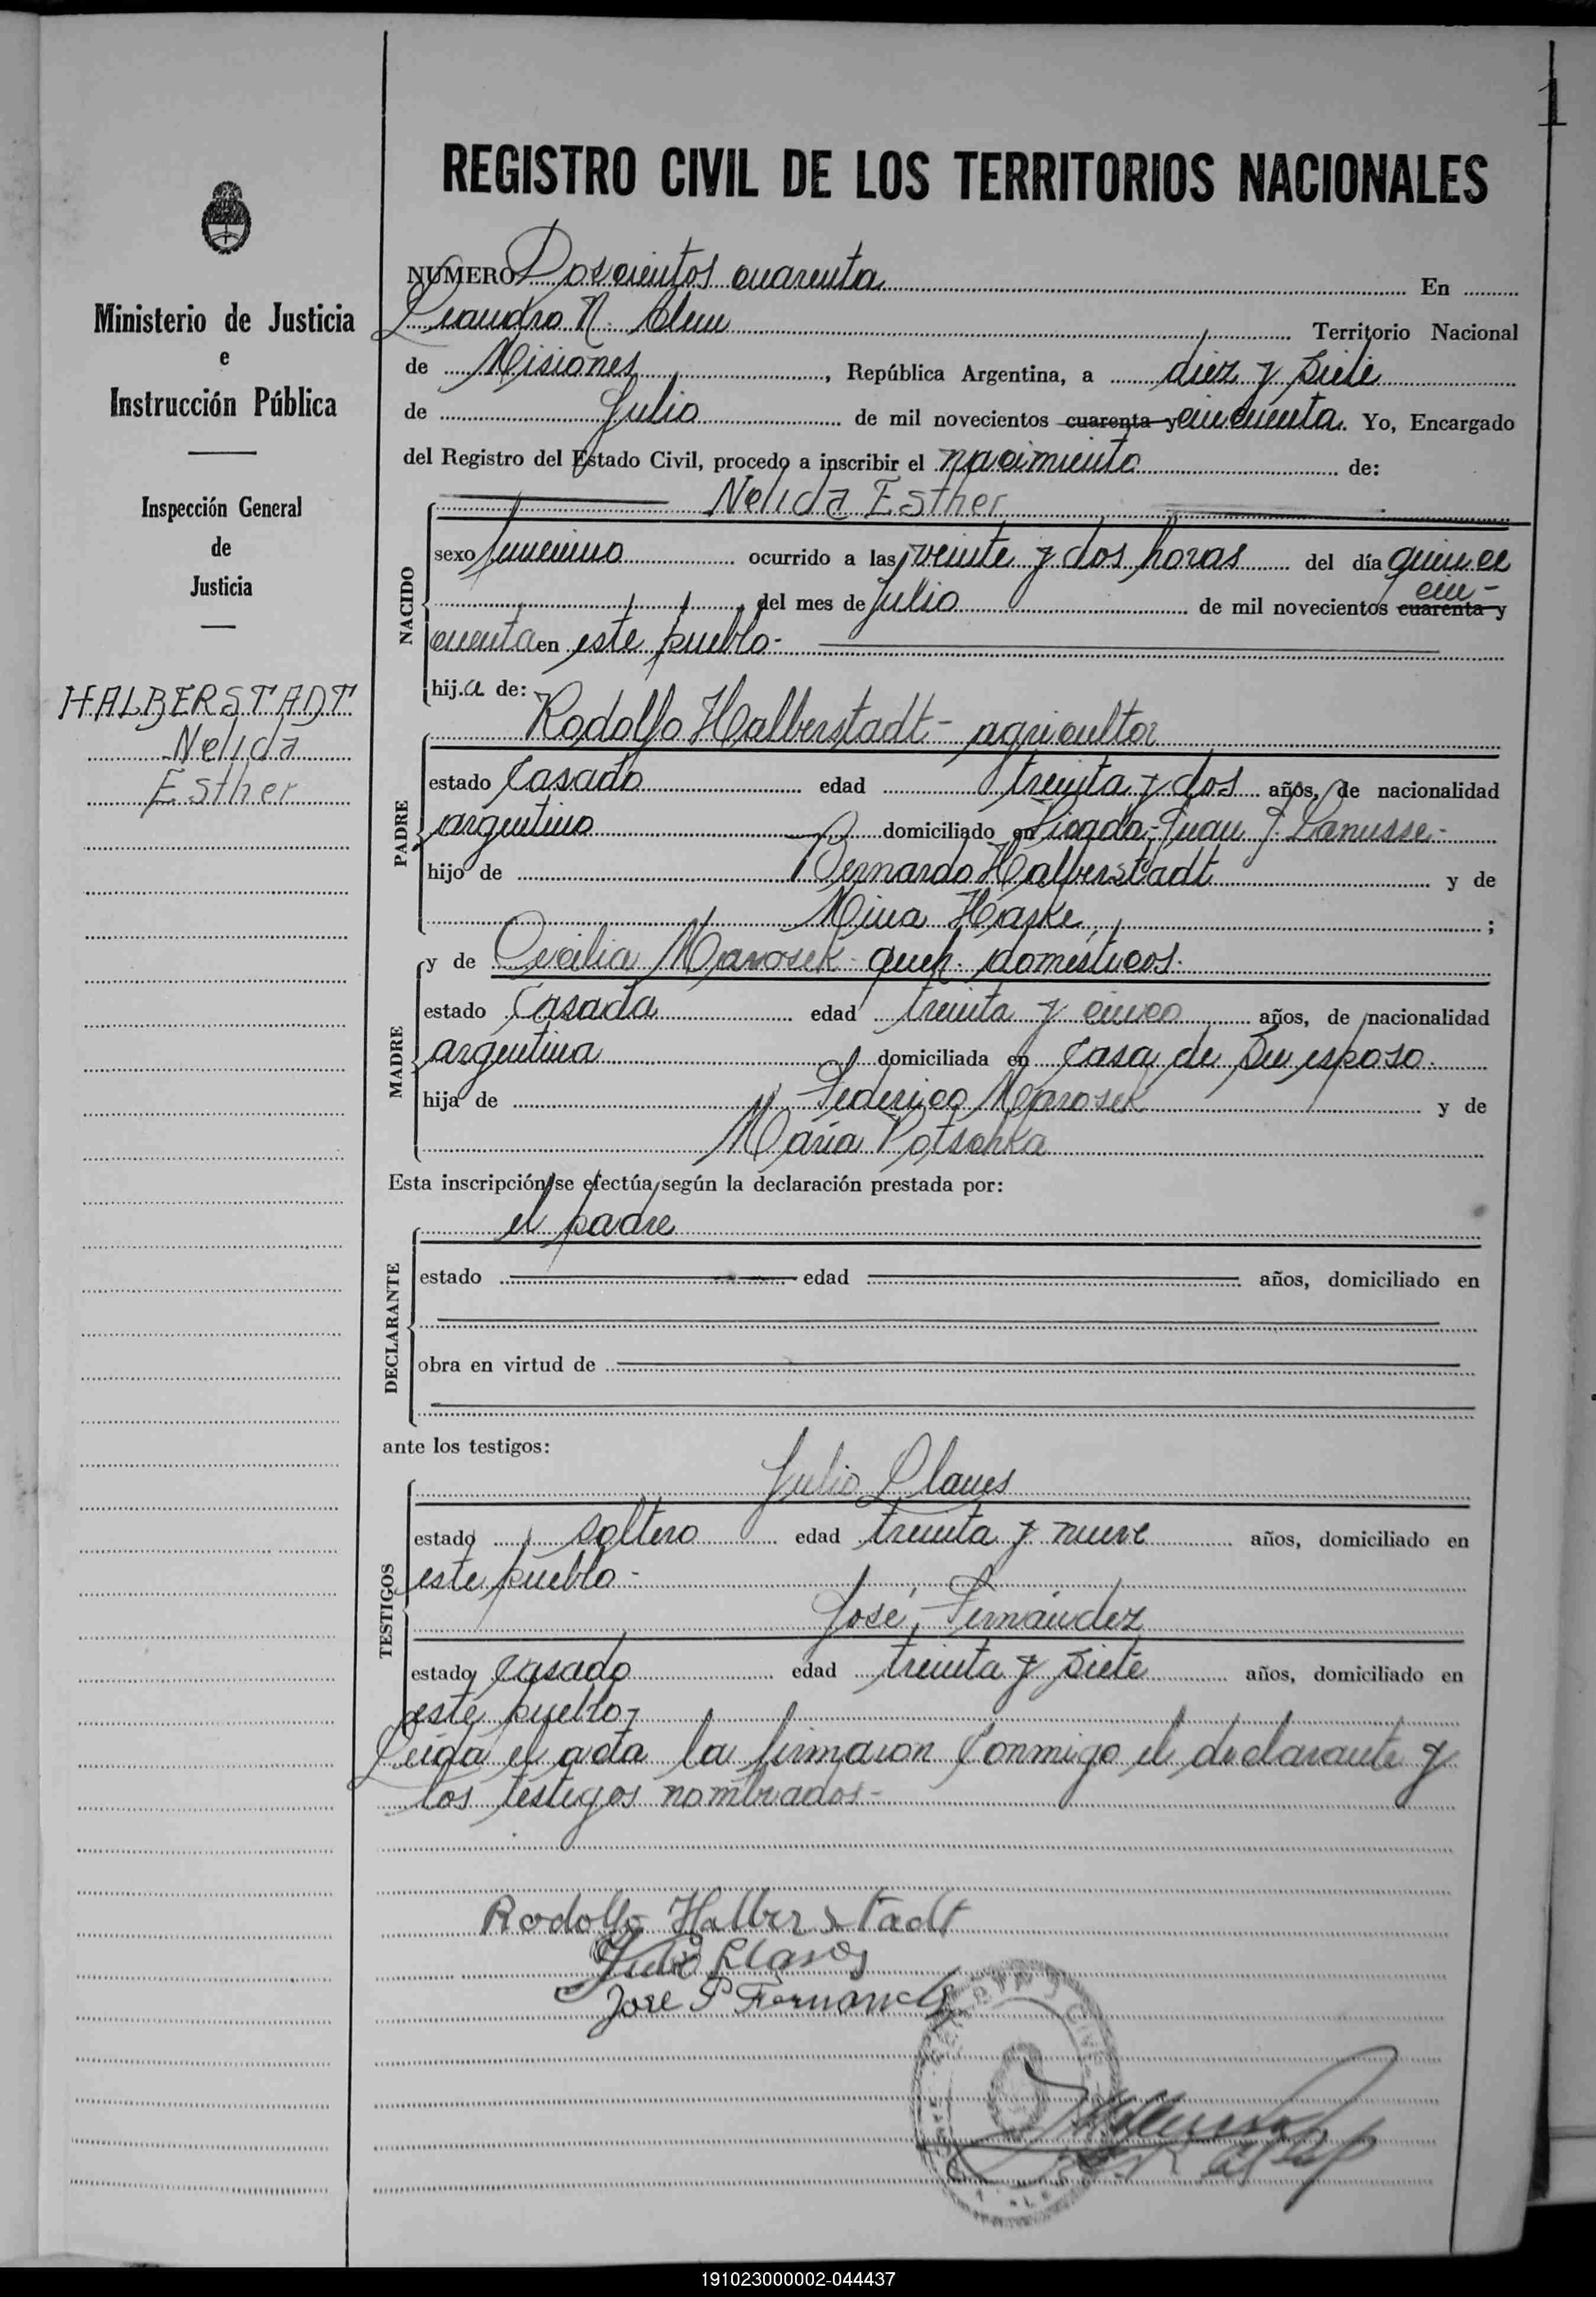 1
REGISTRO CIVIL DE LOS TERRITORIOS NACIONALES
Ministerio de Justicia
e
Instrucción Pública
Inspección General
de
Justicia
HALBERSTADT
Nelida
Esther
NUMERO Doscientos cuarenta En
Leandro N. Alem Territorio Nacional
de Misiones, República Argentina, a diez y siete
de Julio de mil novecientos cuarenta y cincuenta. Yo, Encargado
del Registro del Estado Civil, procedo a inscribir el nacimiento de:
Nelida Esther
NACIDO
sexo femenino ocurrido a las veinte y dos horas del día quince
del mes de Julio de mil novecientos cuarenta y cin-
cuenta en este pueblo-
hija de:
Rodolfo Halberstadt- agricultor
PADRE
estado casado edad treinta y dos años, de nacionalidad
argentino domiciliado en Picada-Juan J. Lanusse-
hijo de Bernardo Halberstadt y de
Mina Haske;
MADRE
y de Cecilia Marosek- queh. domésticos.
estado casada edad treinta y cinco años, de nacionalidad
argentina domiciliada en casa de su esposo.
hija de Federico Marosek y de
María Potschka
Esta inscripción se efectúa según la declaración prestada por:
el padre
DECLARANTE
estado edad años, domiciliado en
obra en virtud de
ante los testigos:
Julio Llanes
TESTIGOS
estado soltero edad treinta y nueve años, domiciliado en
este pueblo-
José Fernández
estado casado edad treinta y siete años, domiciliado en
este pueblo-
Leída el acta la firmaron conmigo el declarante y
los testigos nombrados-
Rodolfo Halberstadt
Julio Llanes
Jose P Fernandez
191023000002-044437